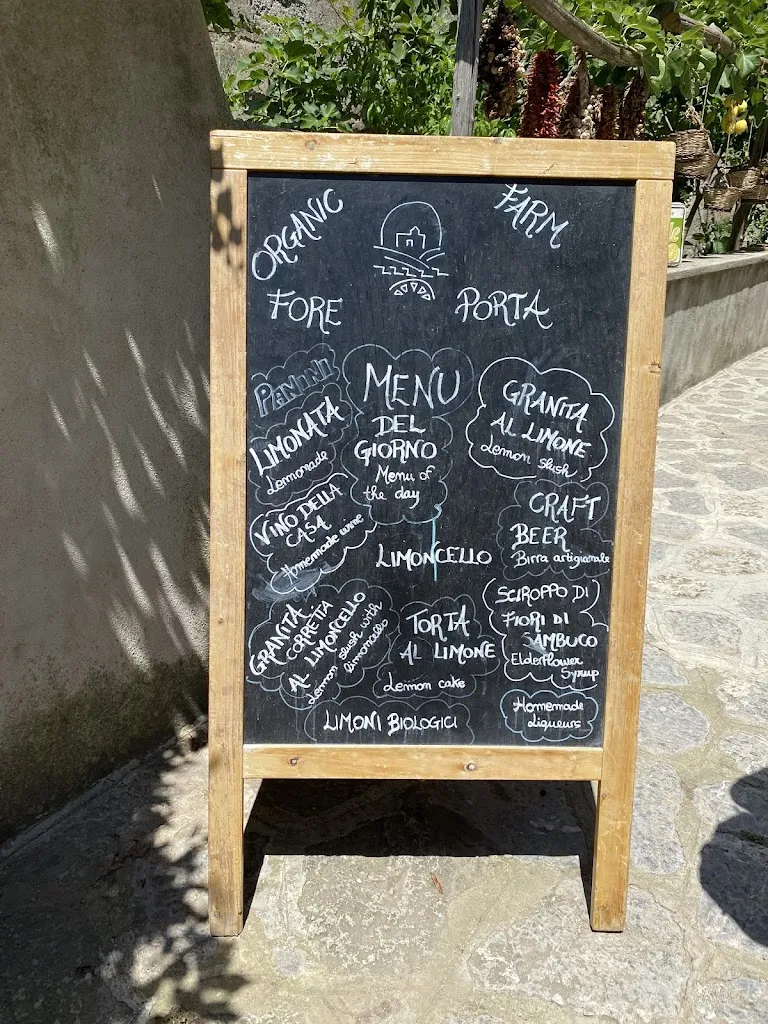 ORGANIC
FARM
FORE
PORTA
PANINI
LIMONATA
Lemonade
VINO DELLA
CASA
Homemade wine
MENU
DEL
GIORNO
Menu of
the day
GRANITA
AL LIMONE
Lemon slush
CRAFT
BEER
Birra artigianale
LIMONCELLO
GRANITA
CORRETTA
AL LIMONCELLO
Lemon slush with
limoncello
TORTA
AL LIMONE
Lemon cake
SCIROPPO DI
FIORI DI
SAMBUCO
Elderflower
Syrup
LIMONI BIOLOGICI
Homemade
liqueurs